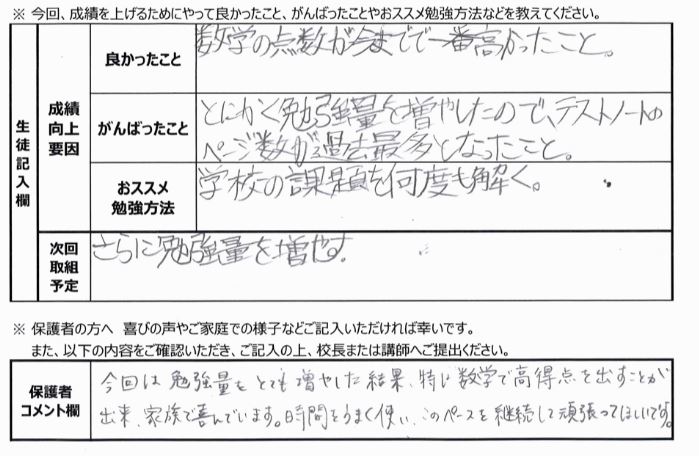 ※ 今回、成績を上げるためにやって良かったこと、がんばったことやおススメ勉強方法などを教えてください。
生徒記入欄
成績
向上
要因
良かったこと
数学の点数が今までで一番高かったこと。
がんばったこと
とにかく勉強量を増やしたので、テストノートの
ページ数が過去最多となったこと。
おススメ
勉強方法
学校の課題を何度も解く。
次回
取組
予定
さらに勉強量を増やす.
※ 保護者の方へ 喜びの声やご家庭での様子などご記入いただければ幸いです。
また、以下の内容をご確認いただき、ご記入の上、校長または講師へご提出ください。
保護者
コメント欄
今回は勉強量をとても増やした結果、特に数学で高得点を出すことが
出来、家族で喜んでいます。時間をうまく使い、このペースを継続して頑張ってほしいです。